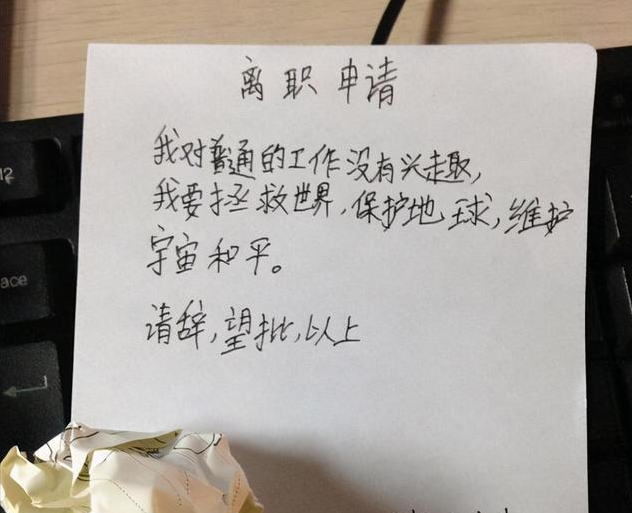 离职申请
我对普通的工作没有兴趣,
我要拯救世界,保护地球,维护
宇宙和平。
请辞,望批,以上
ace